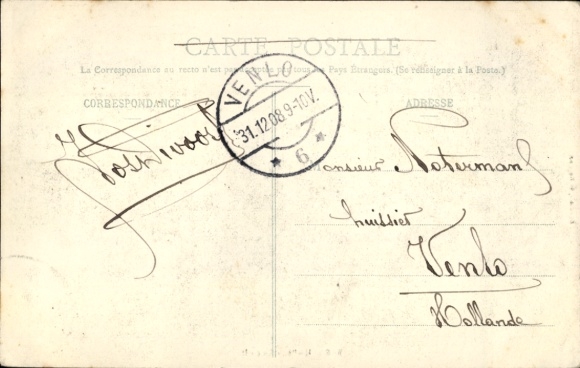 CARTE POSTALE
La Correspondance au recto n'est pas par tous les Pays Étrangers. (Se renseigner à la Poste.)
CORRESPONDANCE
ADRESSE
VENLO
31.12.08 9-10V.
* 6 *
Monsieur Notermans
huissier
Venlo
Hollande